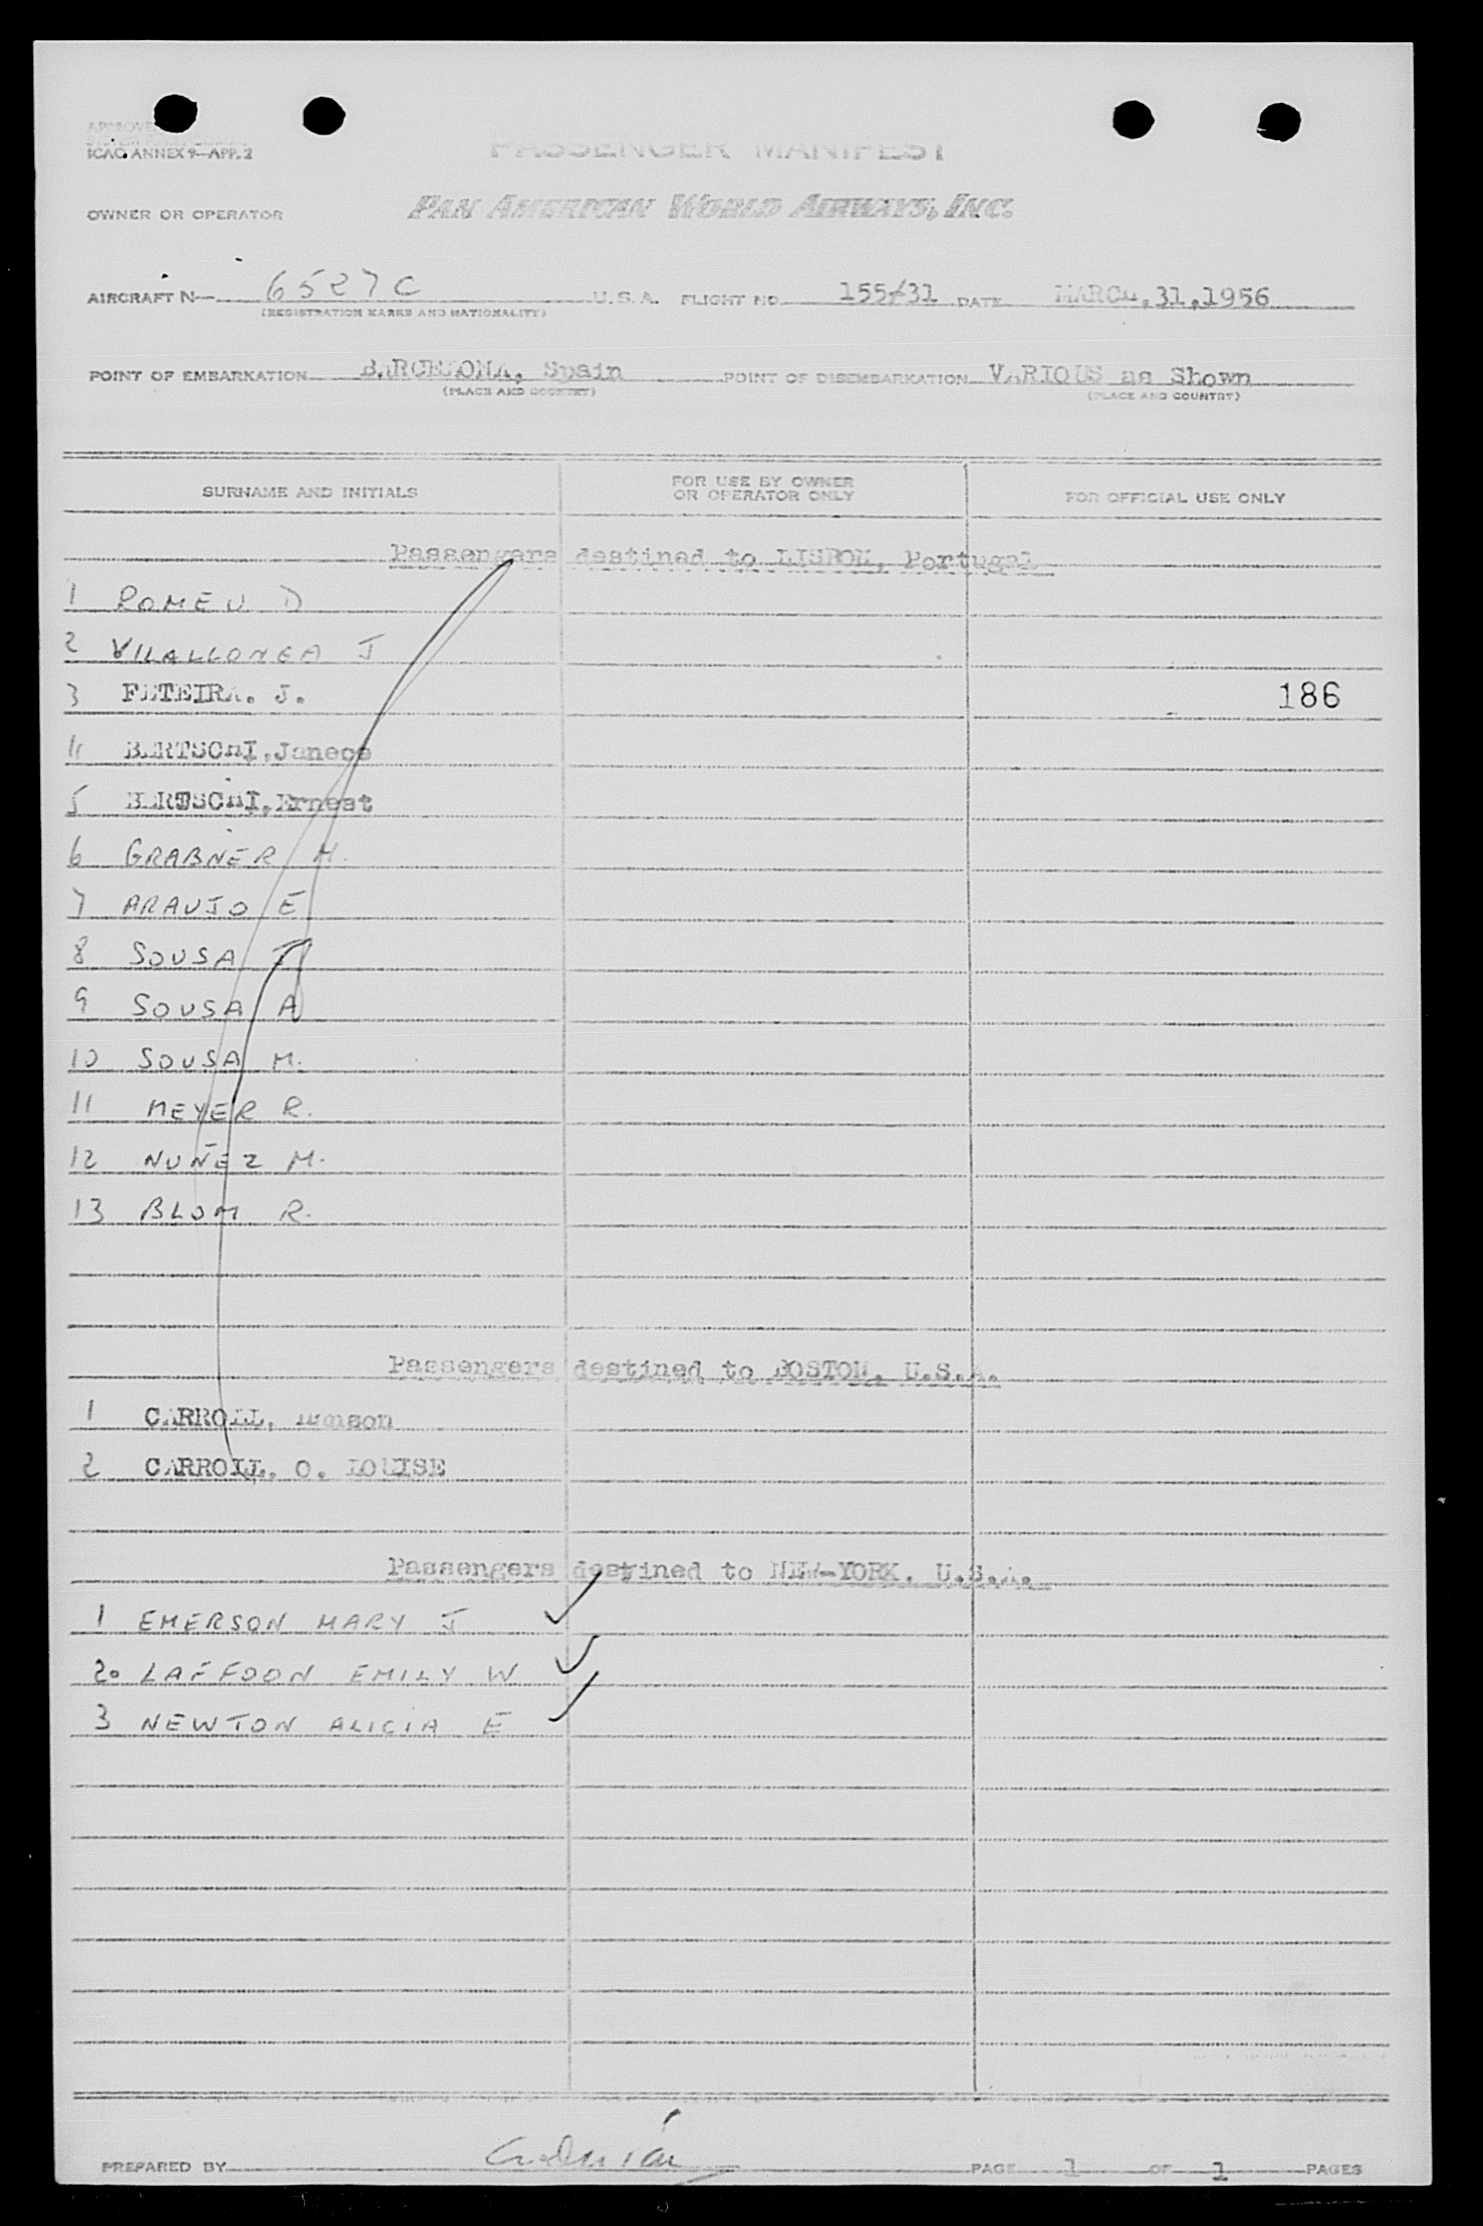 ICAO ANNEX 9—APP. 2
PASSENGER MANIFEST
OWNER OR OPERATOR PAN AMERICAN WORLD AIRWAYS, INC.
AIRCRAFT N— 6527C U.S.A. FLIGHT NO. 155/31 DATE MARCH, 31, 1956
(REGISTRATION MARKS AND NATIONALITY)
POINT OF EMBARKATION BARCELONA, Spain POINT OF DISEMBARKATION VARIOUS as Shown
(PLACE AND COUNTRY) (PLACE AND COUNTRY)
SURNAME AND INITIALS FOR USE BY OWNER OR OPERATOR ONLY FOR OFFICIAL USE ONLY
Passengers destined to LISBON, Portugal
1 ROMEU D
2 VILALLONGA J
3 FETEIRA. J. 186
4 BERTSCHI, Janece
5 BERTSCHI, Ernest
6 GRABNER M.
7 ARAUJO E
8 SOUSA J
9 SOUSA A
10 SOUSA M.
11 MEYER R.
12 NUÑEZ M.
13 BLOM R.
Passengers destined to BOSTON, U.S.A.
1 CARROLL,
2 CARROLL, O. LOUISE
Passengers destined to NEW-YORK. U.S.A.
1 EMERSON MARY J
2. LAFFOON EMILY W
3 NEWTON ALICIA E
PREPARED BY PAGE 1 OF 1 PAGES